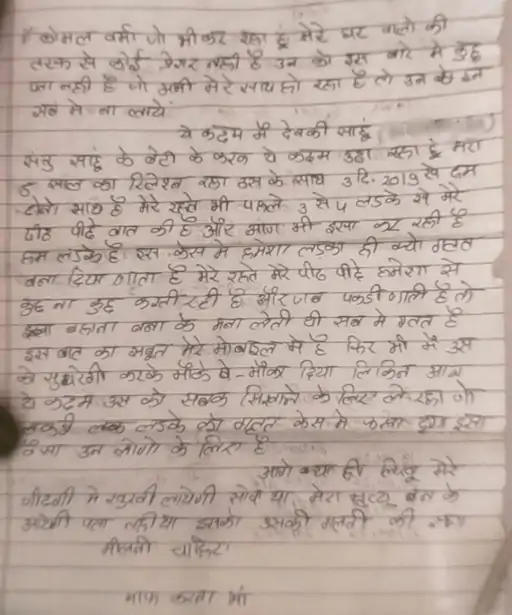 कोमल वर्मा जो भी कर रहा हूं मेरे घर वालो की
तरफ से कोई प्रेशर नही है उन को इस बारे मे कुछ
पता नही है जो अभी मेरे साथ हो रहा है तो उन के इन
सब मे ना लाये
ये कदम मै देवकी साहू
संतु साहू के बेटी के कारन ये कदम उठा रहा हूं मेरा
5 साल का रिलेशन रहा उस के साथ 2019 से हम
दोनो साथ है मेरे रहते भी पहले 3 से 4 लडके से मेरे
पीठ पीछे बात की है और आज भी इसा कर रही है
हम लडके है इस केस मे हमेशा लडका ही क्यो गलत
बना दिया जाता है मेरे रहते मेरे पीठ पीछे हमेशा से
कुछ ना कुछ करती रही है और जब पकडी जाती है तो
बहाना बना के मना लेती थी सब मे गलत है
इस बात का सबूत मेरे मोबाइल मे है फिर भी मै उस
को सुधरेगी करके मौके पे मौका दिया लेकिन आज
ये कदम उस को सबक सिखाने के लिए ले रहा जो
लडके को गलत केस मे फसा
उन लोगो के लिए है
आगे क्या ही लिखू मेरे
जीदगी मे खुशी लायेगी सोचा था मेरा मृत्यू बन के
आयेगी पता नही था इसको उसकी गलती की सजा
मीलनी चाहिए
माफ करना माँ